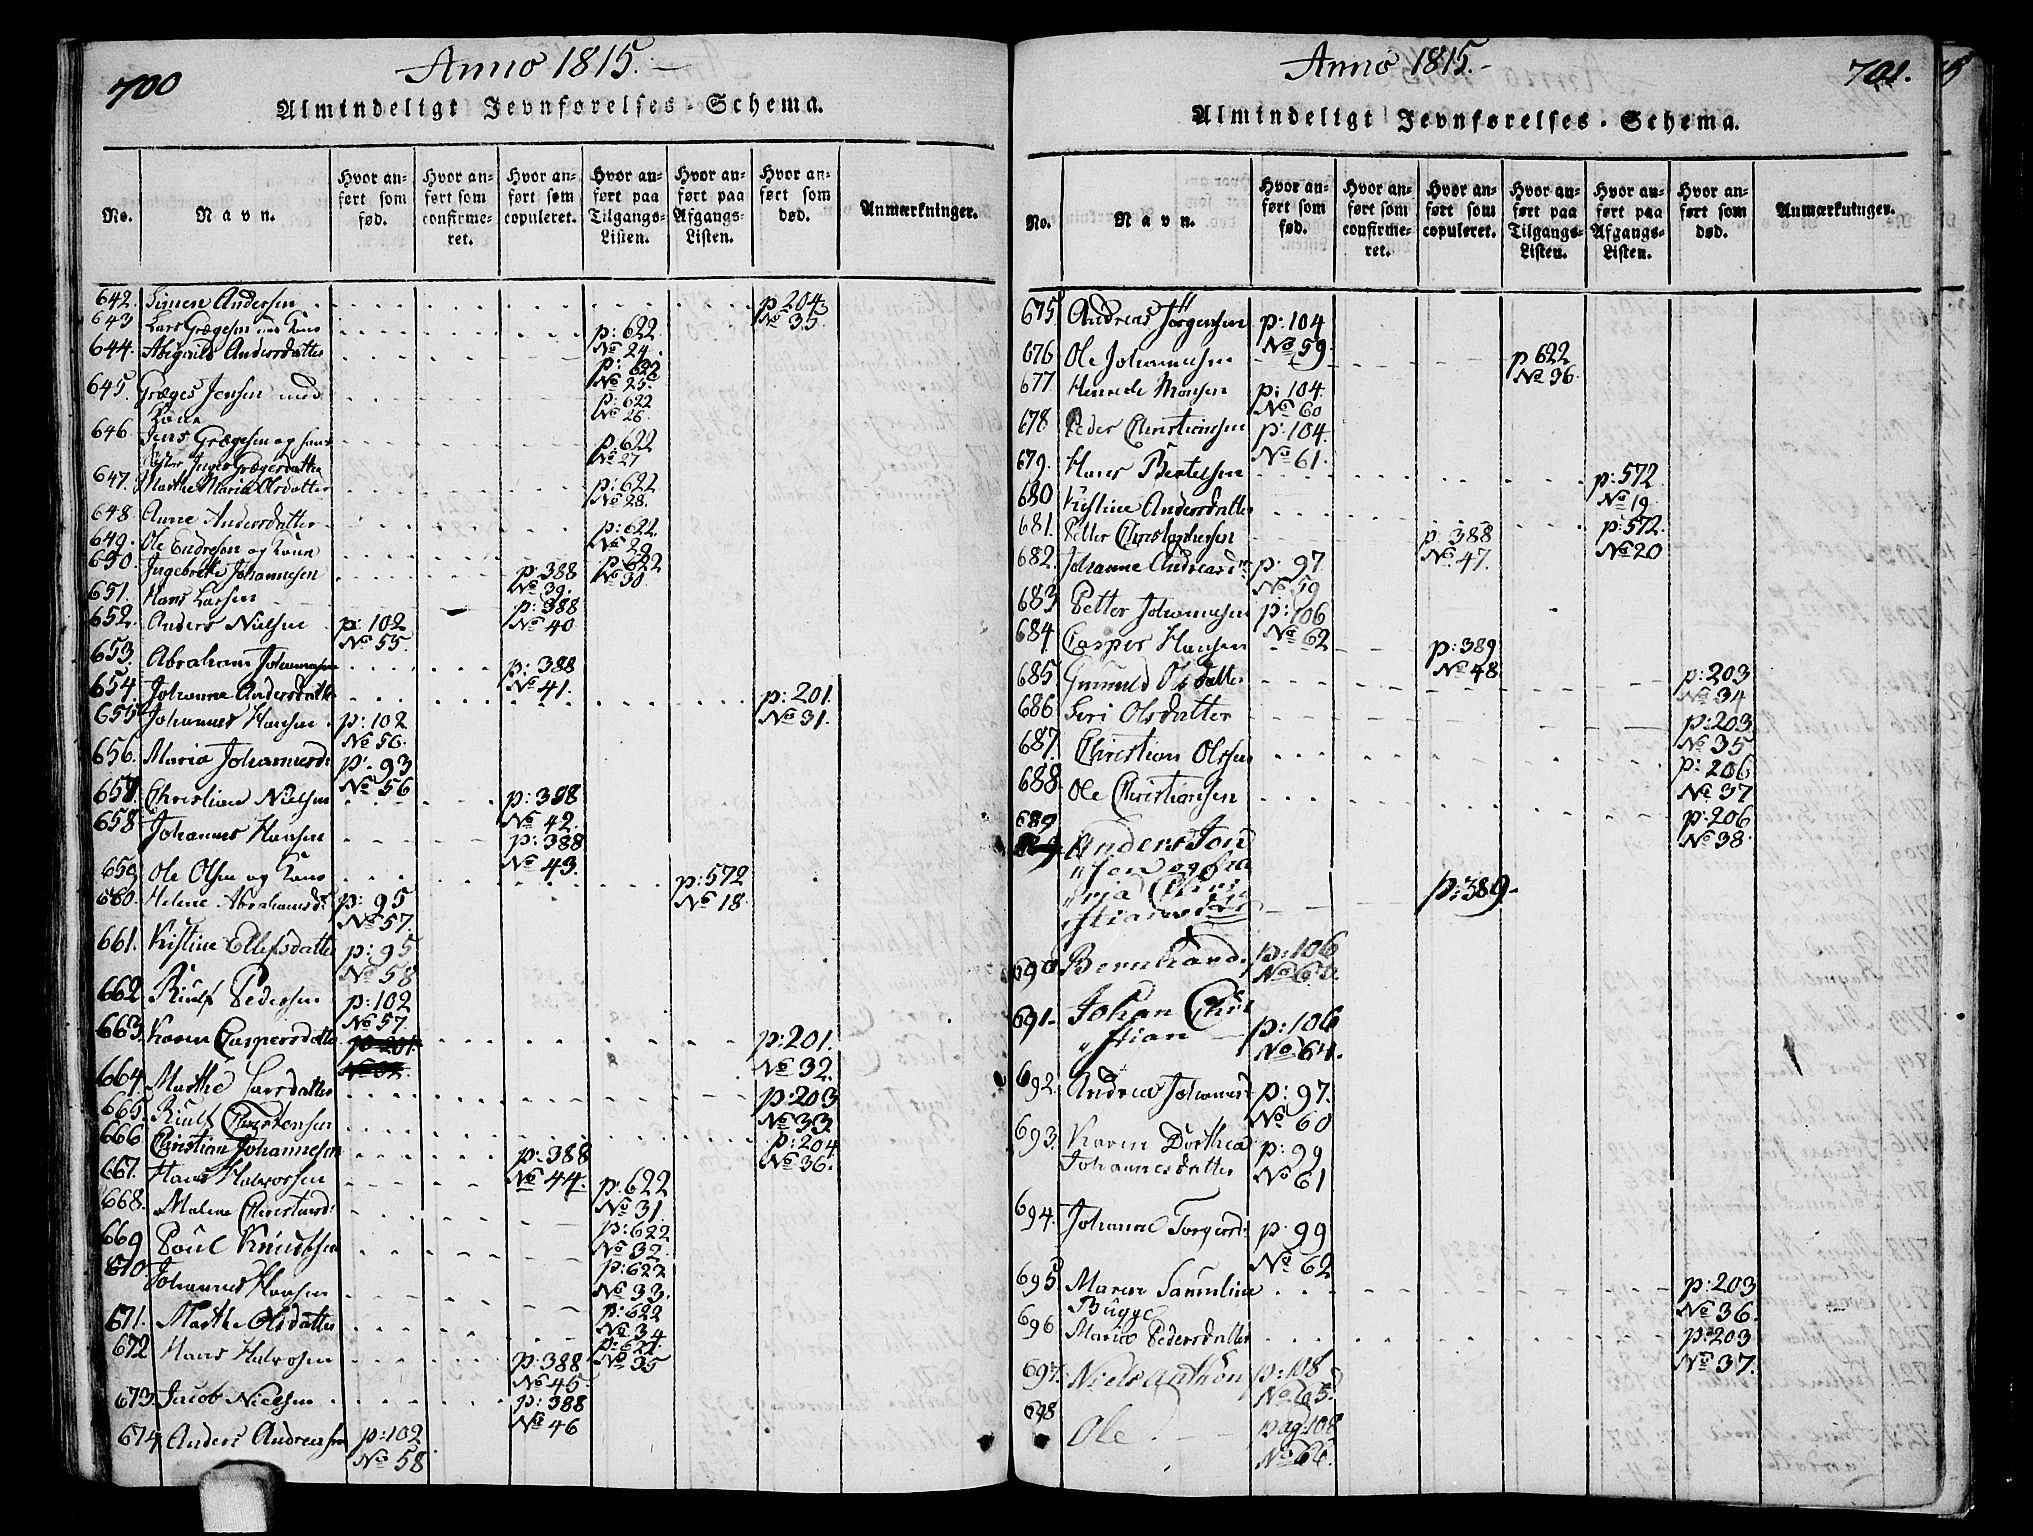 700
Anno 1815.
Almindeligt Jevnførelses-Schema.
No.
Navn.
Hvor anført som fød.
Hvor anført som confirmeret.
Hvor anført som copuleret.
Hvor anført paa Tilgangs-Listen.
Hvor anført paa Afgangs-Listen.
Hvor anført som død.
Anmærkninger.
642. Simen Andersen p: 204 No 35.
643 Lars Grægesen med Kone p: 622 No 24.
644. Abigaild Andersdatter p: 622 No 25.
645. Græges Jensen med Kone p: 622 No 26
646 Jens Grægesen og hans Søster Inger Grægersdatter p: 622 No 27
647. Marthe Maria Olsdatter p: 622 No 28.
648. Anne Andersdatter p: 622 No 29
649. Ole Endresen og Kone p: 622 No 30
650. Ingebrekt Johannesen p: 388 No 39.
651. Hans Larsen p: 388 No 40
652. Anders Nielsen p: 102 No 55.
653. Abraham Johannesen p: 388 No 41.
654. Johanne Andersdatter p: 201. No 31.
655 Johannes Hansen p: 102 No 56.
656. Maria Johannesd: p: 93 No 56
657. Christian Nielsen p: 388 No 42.
658. Johannes Hansen p: 388 No 43.
659 Ole Olsen og Kone p: 572 No 18.
660. Helene Abrahamsd: p: 95 No 57.
661. Kristine Ellefsdatter p: 95 No 58
662 Riulf Pedersen p: 102 No 57.
663. Karen Caspersdatter p: 201. No 32.
664. Marthe Larsdatter p: 203 No 33
665. Riulf Christensen p: 204 No 36.
666 Christian Johannesen p: 388 No 44.
667. Hans Halvorsen p: 622 No 31.
668. Malene Christiansd: p: 622 No 32.
669 Poul Knudsen p: 622 No 33.
670 Johannes Hansen p: 622 No 34
671. Marthe Olsdatter p: 622 No 35
672 Hans Halvorsen p: 388 No 45.
673. Jacob Nielsen p: 388 No 46
674 Anders Andreassen p: 102 No 58
Anno 1815.
701.
Almindeligt Jevnførelses-Schema.
No.
Navn.
Hvor anført som fød.
Hvor anført som confirmeret.
Hvor anført som copuleret.
Hvor anført paa Tilgangs-Listen.
Hvor anført paa Afgangs-Listen.
Hvor anført som død.
Anmærkninger.
675 Andreas Jörgensen p: 104 No 59
676 Ole Johannesen p 622 No 36
677. Henrich Monsen p: 104. No 60
678 Peder Christiansen p: 104. No 61.
679. Hans Bertelsen p: 572 No 19
680 Kristine Andersdatter p: 572. No 20
681. Petter Christophersen p: 388 No 47.
682. Johanne Andreasd: p: 97 No 59
683 Petter Johannesen p: 106 No 62
684 Casper Hansen p: 389 No 48
685 Gunnild Olsdatter p: 203 No 34
686 Siri Olsdatter p: 203 No 35
687. Christian Olssen p: 206 No 37
688. Ole Christiansen p: 206 No 38.
689
Anders Jon
sen og Ma
ria Chri
stiansdat: p: 389.
690 Bernhard p: 106 No 63.
691. Johan Chri
stian p: 106 No 64.
692. Andrea Johannesd: p: 97. No 60
693. Karen Dorthea Johannesdatter p: 99 No 61
694. Johanne Torgersd: p 99 No 62
695 Maren Samuline Bugge p: 203 No 36.
696 Maria Pedersdatter p: 203 No 37.
697. Niels Anthon p: 108 No 65.
698 Ole pag: 108 No 66.